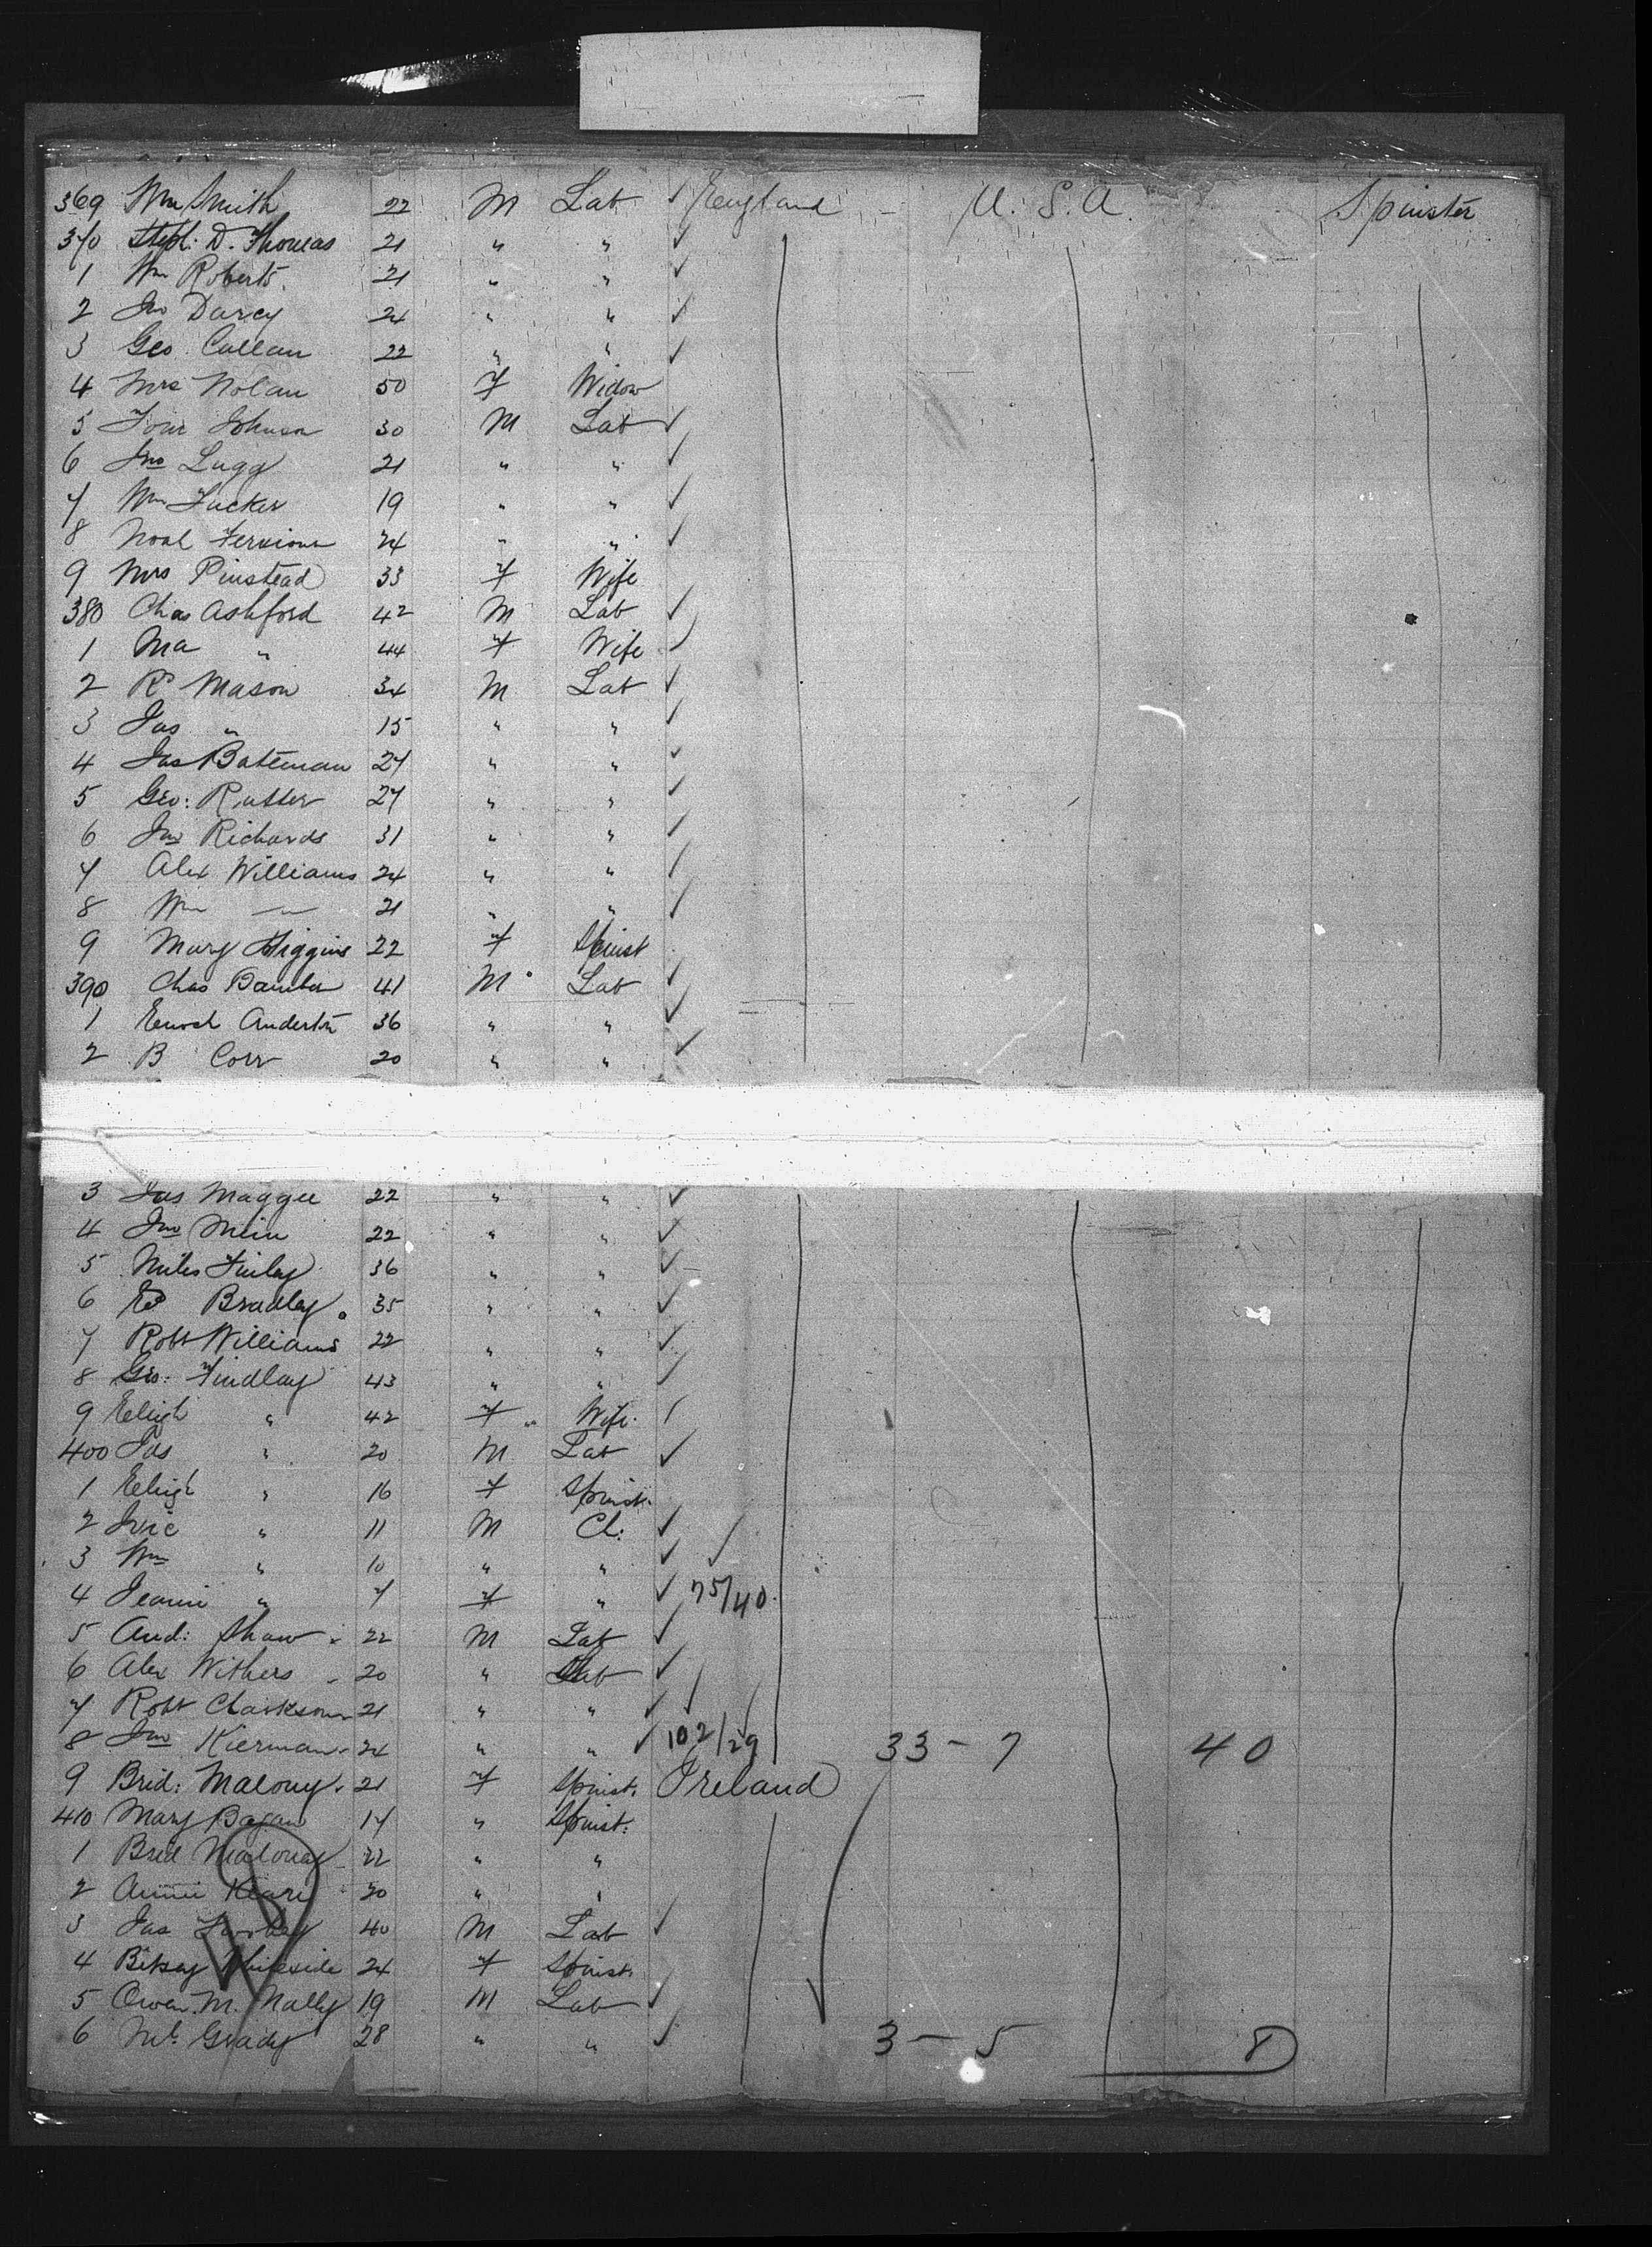 369 Wm Smith 22 M Lab ✓ England U. S. A. Spinster
370 Steph: D. Thomas 21 " " ✓
1 Wm Roberts. 21 " " ✓
2 Jno Darcy 24 " " ✓
3 Geo. Callan 22 " " ✓
4 Mrs Nolan 50 F Widow
5 Tom Johnson 30 M Lab ✓
6 Jno Lugg 21 " " ✓
7 Wm Tucker 19 " " ✓
8 Noah 24 " " ✓
9 Mrs Pinstead 33 F Wife
380 Chas Ashford 42 M Lab ✓
1 Ma " 44 F Wife ✓
2 Rd Mason 34 M Lab ✓
3 Jas " 15 " " ✓
4 Jas Bateman 27 " " ✓
5 Geo: Rutter 27 " " ✓
6 Jno Richards 31 " " ✓
7 Alex Williams 24 " " ✓
8 Wm — " — 21 " " ✓
9 Mary Higgins 22 F Spinst
390 Chas Bamber 41 M Lab ✓
1 Enoch Anderton 36 " " ✓
2 B Corr 20 " " ✓
3 Jas Maggee 22 " " ✓
4 Jno Mein 22 " " ✓
5 Miles Finlay 36 " " ✓
6 Ed Bradley. 35 " " ✓
7 Robt Williams 22 " " ✓
8 Geo: Findlay 43 " " ✓
9 " 42 F " Wife. ✓
400 Jas " 20 M Lab ✓
1 " 16 F Spinst.
2 " 11 M Ch: ✓
3 Wm " 10 " " ✓
4 Jeanie " 7 F " ✓ 75/40.
5 And: Shaw 22 M Lab ✓
6 Alex Withers 20 " Lab ✓
7 Robt Clarkson 21 " " ✓
8 Jno Kierman 24 " " ✓ 102/29 33 - 7 40
9 Brid: Malony. 21 F Spinst. Ireland
410 Mary Bagan 17 " Spinst:
1 Brid Malonay 22 " "
2 Annie 20 " "
3 Jas 40 M Lab ✓
4 Betsey Whiteside 24 F Spinst.
5 Owen M. Nally 19 M Lab ✓
6 Ml. Grady 28 " " ✓ 3 - 5 8